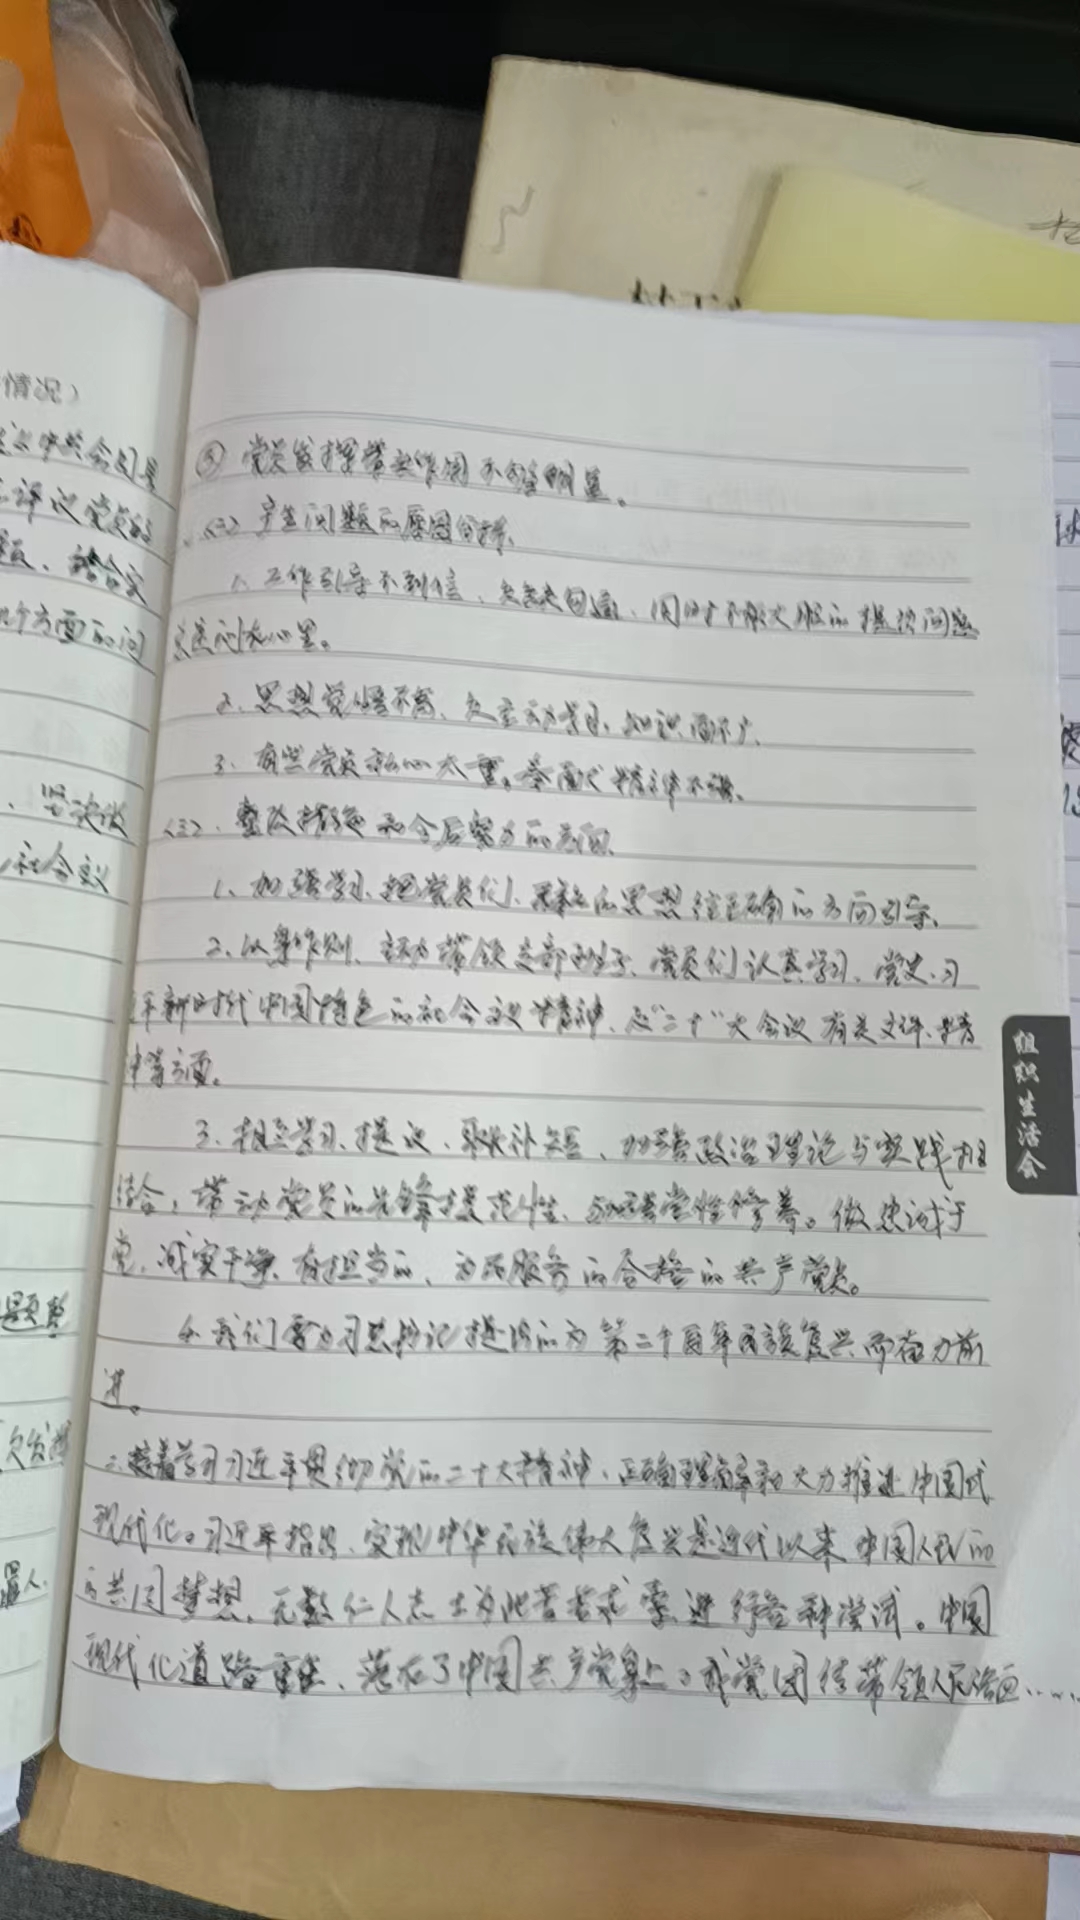 情况）
评议党员的
题、结合实
几个方面的问
、坚决做
社会主义
题整
人.
③ 党员发挥带头作用不够明显。
(二) 产生问题的原因分析.
1、工作引导不到位、 同时不敢大胆的提出问题
总是闷在心里。
2、思想觉悟不高、欠主动学习、知识面不广.
3、有些党员私心太重。奉献精神不强.
(三)、整改措施和今后努力的方向.
1、加强学习、把党员们、 的思想往正确的方向引导.
2.以身作则、主动带领支部班子、党员们认真学习、党史、习
近平新时代中国特色的社会主义精神、及"二十"大会议有关文件、精
神等方面。
3、相互学习、提议、取长补短、加强政治理论与实践相
结合，带动党员的先锋模范性、加强党性修养。做忠诚于
党、诚实干净、有担当的、为民服务的合格的共产党员。
4.我们要为习总书记提出的为第二个百年民族复兴而奋力前
进。
二.接着学习习近平贯彻党的二十大精神、正确理解和大力推进中国式
现代化。习近平指出、实现中华民族伟大复兴是近代以来中国人民的
的共同梦想、无数仁人志士为此苦苦求索、进行各种尝试。中国
现代化道路重任、落在了中国共产党身上。我党团结带领人民 ……
组织生活会